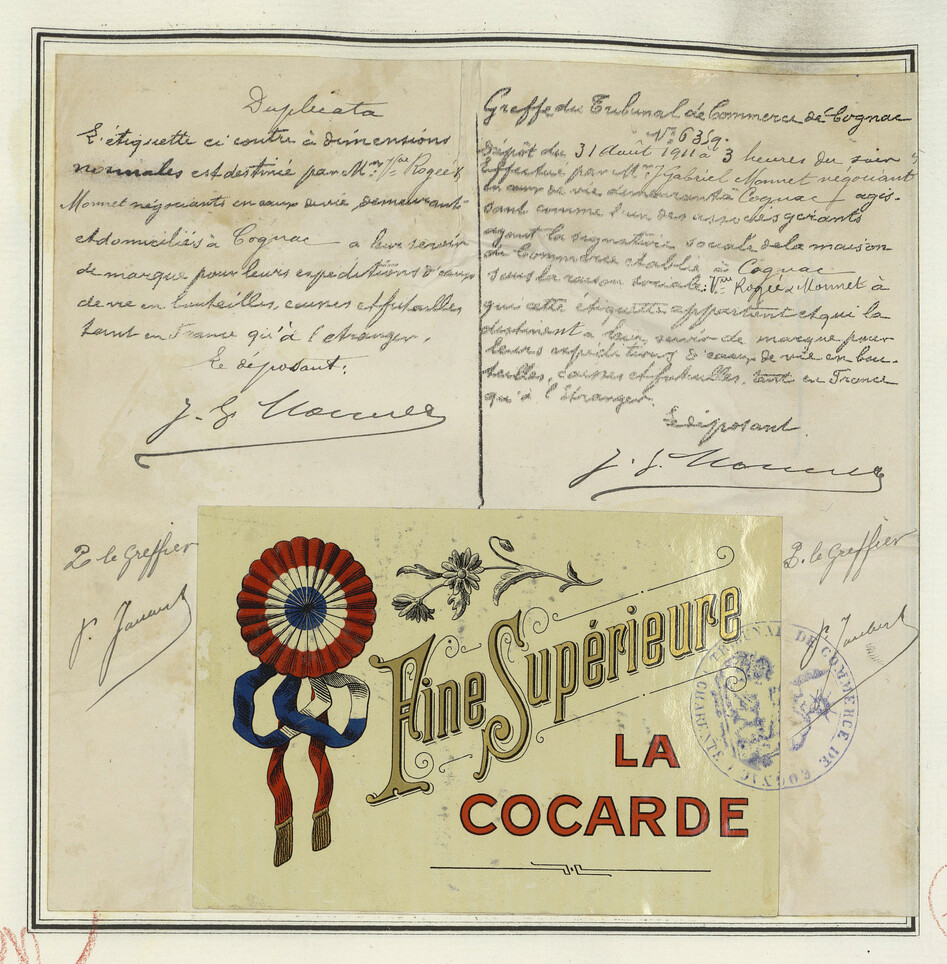 Duplicata
L'étiquette ci contre à dimensions
normales est destinée par MM. Vve Rogée &
Monnet négociants en eaux de vie demeurant
et domiciliés à Cognac a leur servir
de marque pour leurs expéditions d'eaux
de vie en bouteilles, caisses et futailles
tant en France qu'à l'étranger.
Le déposant:
J. G. Monnet
P. le Greffier
Greffe du Tribunal de Commerce de Cognac
N° 6359.
Dépôt du 31 Août 1911 à 3 heures du soir
Effectué par M. J. Gabriel Monnet négociant
en eaux de vie, demeurant à Cognac agis-
sant comme l'un des associés gérants
ayant la signature sociale de la maison
de Commerce établie à Cognac
sous la raison sociale: Vve Rogée & Monnet à
qui cette étiquette appartient et qui la
destinent a leur servir de marque pour
leurs expéditions d'eaux de vie en bou-
teilles, caisses et futailles, tant en France
qu'à l'Étranger.
Le déposant
J. G. Monnet
P. le Greffier
Fine Supérieure
LA
COCARDE
TRIBUNAL DE COMMERCE DE COGNAC (CHARENTE)